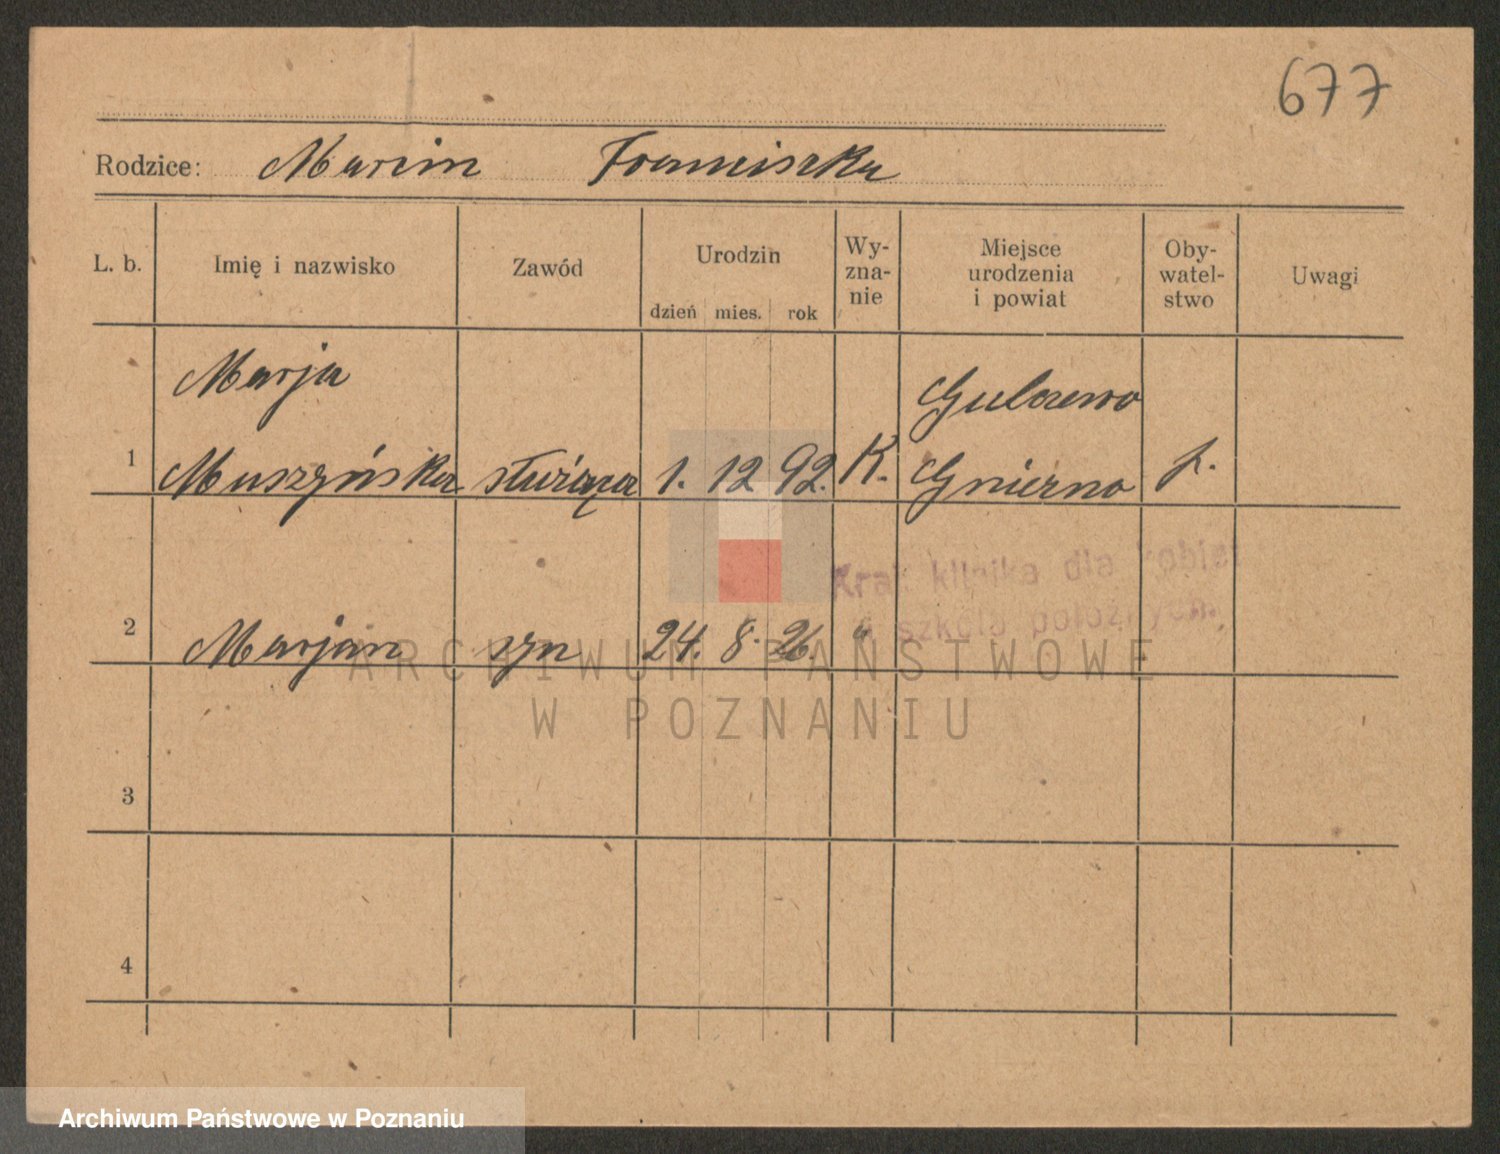 677
Rodzice: Marcin Franciszka
L. b. Imię i nazwisko Zawód Urodzin dzień mies. rok Wy- zna- nie Miejsce urodzenia i powiat Oby- watel- stwo Uwagi
Marja Gulczewo
1 Muszyńska służąca 1. 12 92. K. Gniezno p.
Kraj. klinika dla kobiet
i szkoła położnych.
2 Marjan syn 24. 8. 26. "
ARCHIWUM PAŃSTWOWE
W POZNANIU
3
4
Archiwum Państwowe w Poznaniu